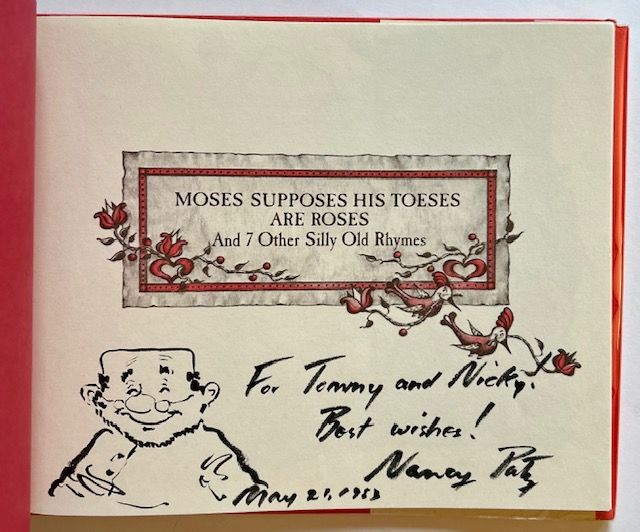 MOSES SUPPOSES HIS TOESES
ARE ROSES
And 7 Other Silly Old Rhymes
For Tommy and Nicky!
Best wishes!
Nancy Patz
May 21, 1983